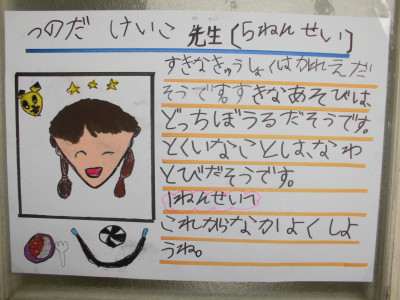 つのだ けいこ 先生(5ねんせい)
すきなきゅうしょくはかれえだ
そうです。すきなあそびは、
どっちぼうるだそうです。
とくいなことは、なわ
とびだそうです。
1ねんせいへ
これからなかよくしよ
うね。